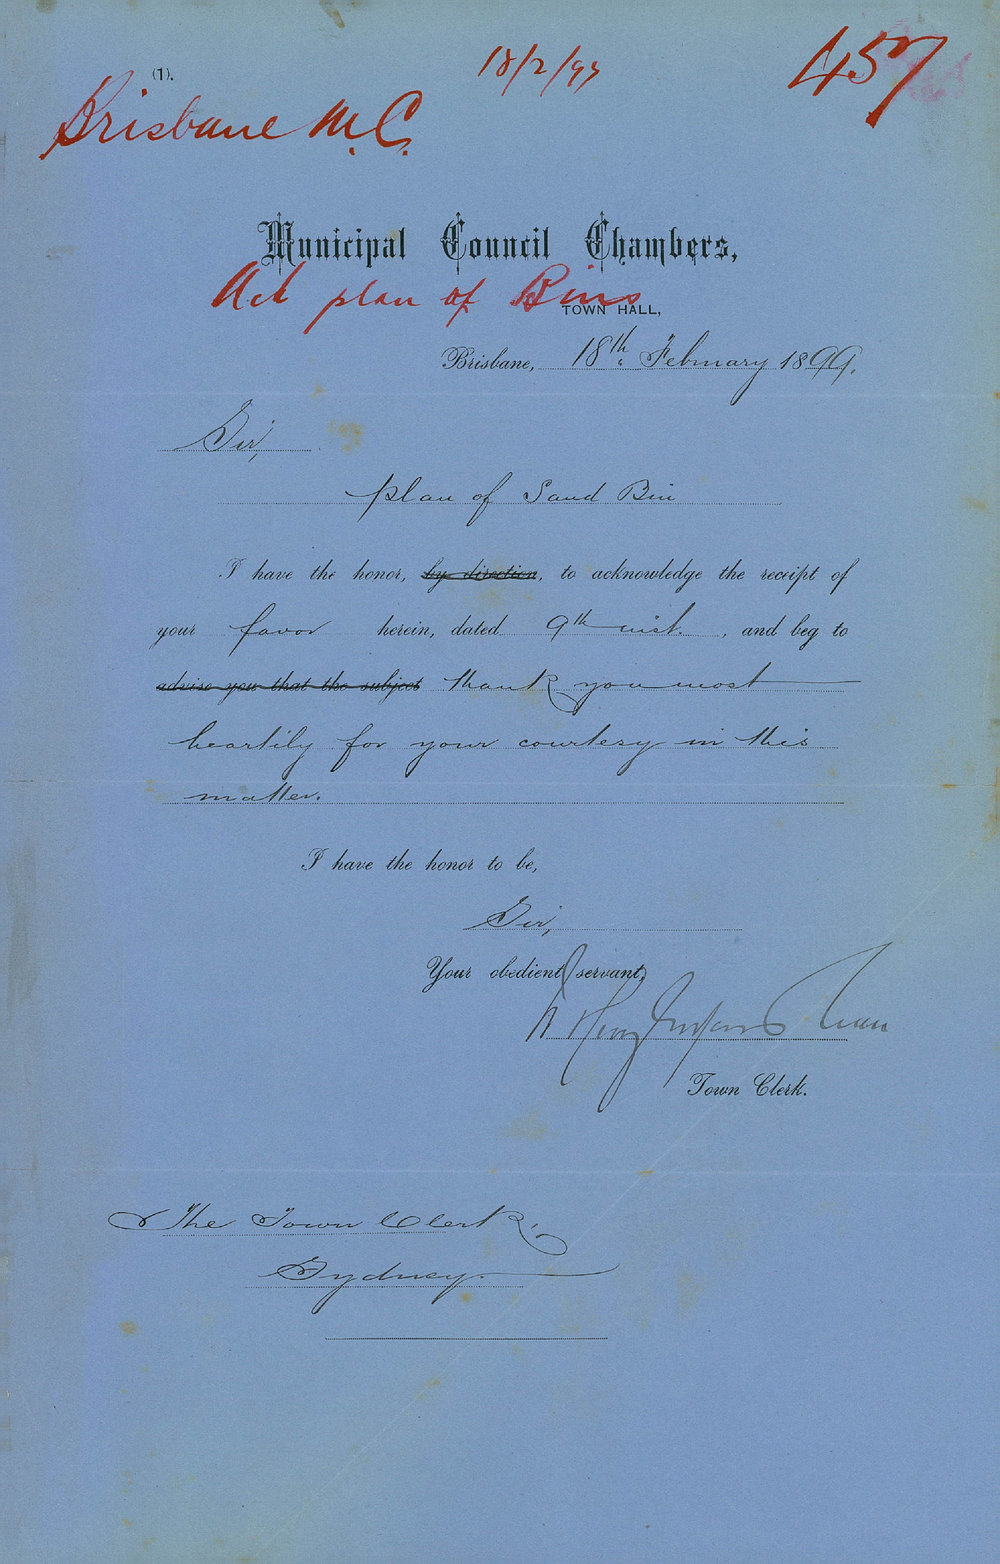 (1).
18/2/99
457
Brisbane M.C.
Municipal Council Chambers,
Ack plan of Bins
TOWN HALL,
Brisbane, 18th February 1899.
Sir,
plan of Sand Bin
I have the honor, by direction, to acknowledge the receipt of
your favor herein, dated 9th inst. , and beg to
advise you that the subject thank you most
heartily for your courtesy in this
matter.
I have the honor to be,
Sir,
Your obedient servant,
Town Clerk.
The Town Clerk,
Sydney.